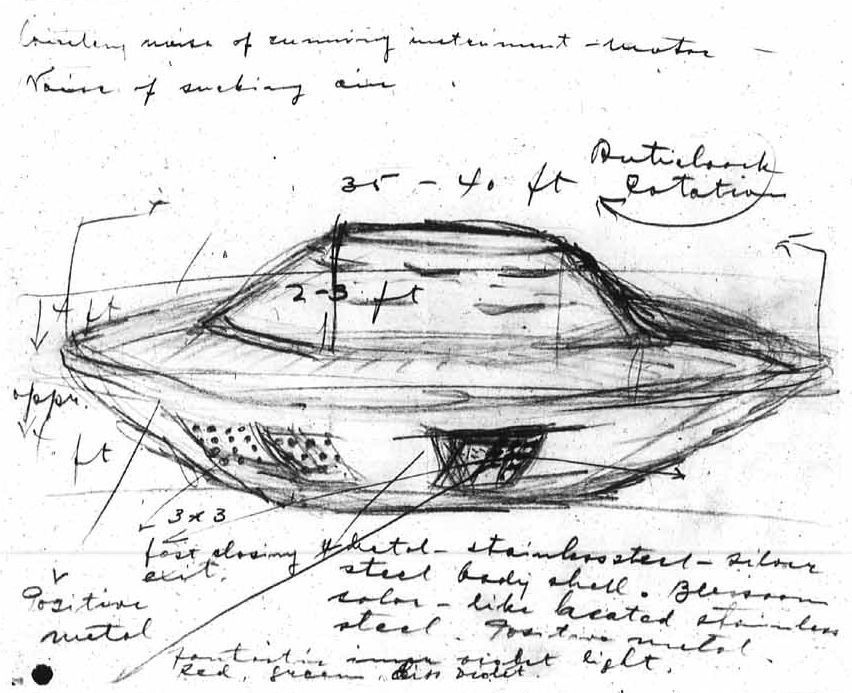 noise of running instrument - motor -
Noise of sucking air
Anticlock
35 - 40 ft
Rotation
2-3 ft
4 ft
appr.
4 ft
3 x 3
fast closing
exit.
Metal - stainless steel - silver
steel body shell. Blossom
color - like heated stainless
steel. Positive metal.
Positive
metal
fantastic inner violet light.
Red, green, violet.